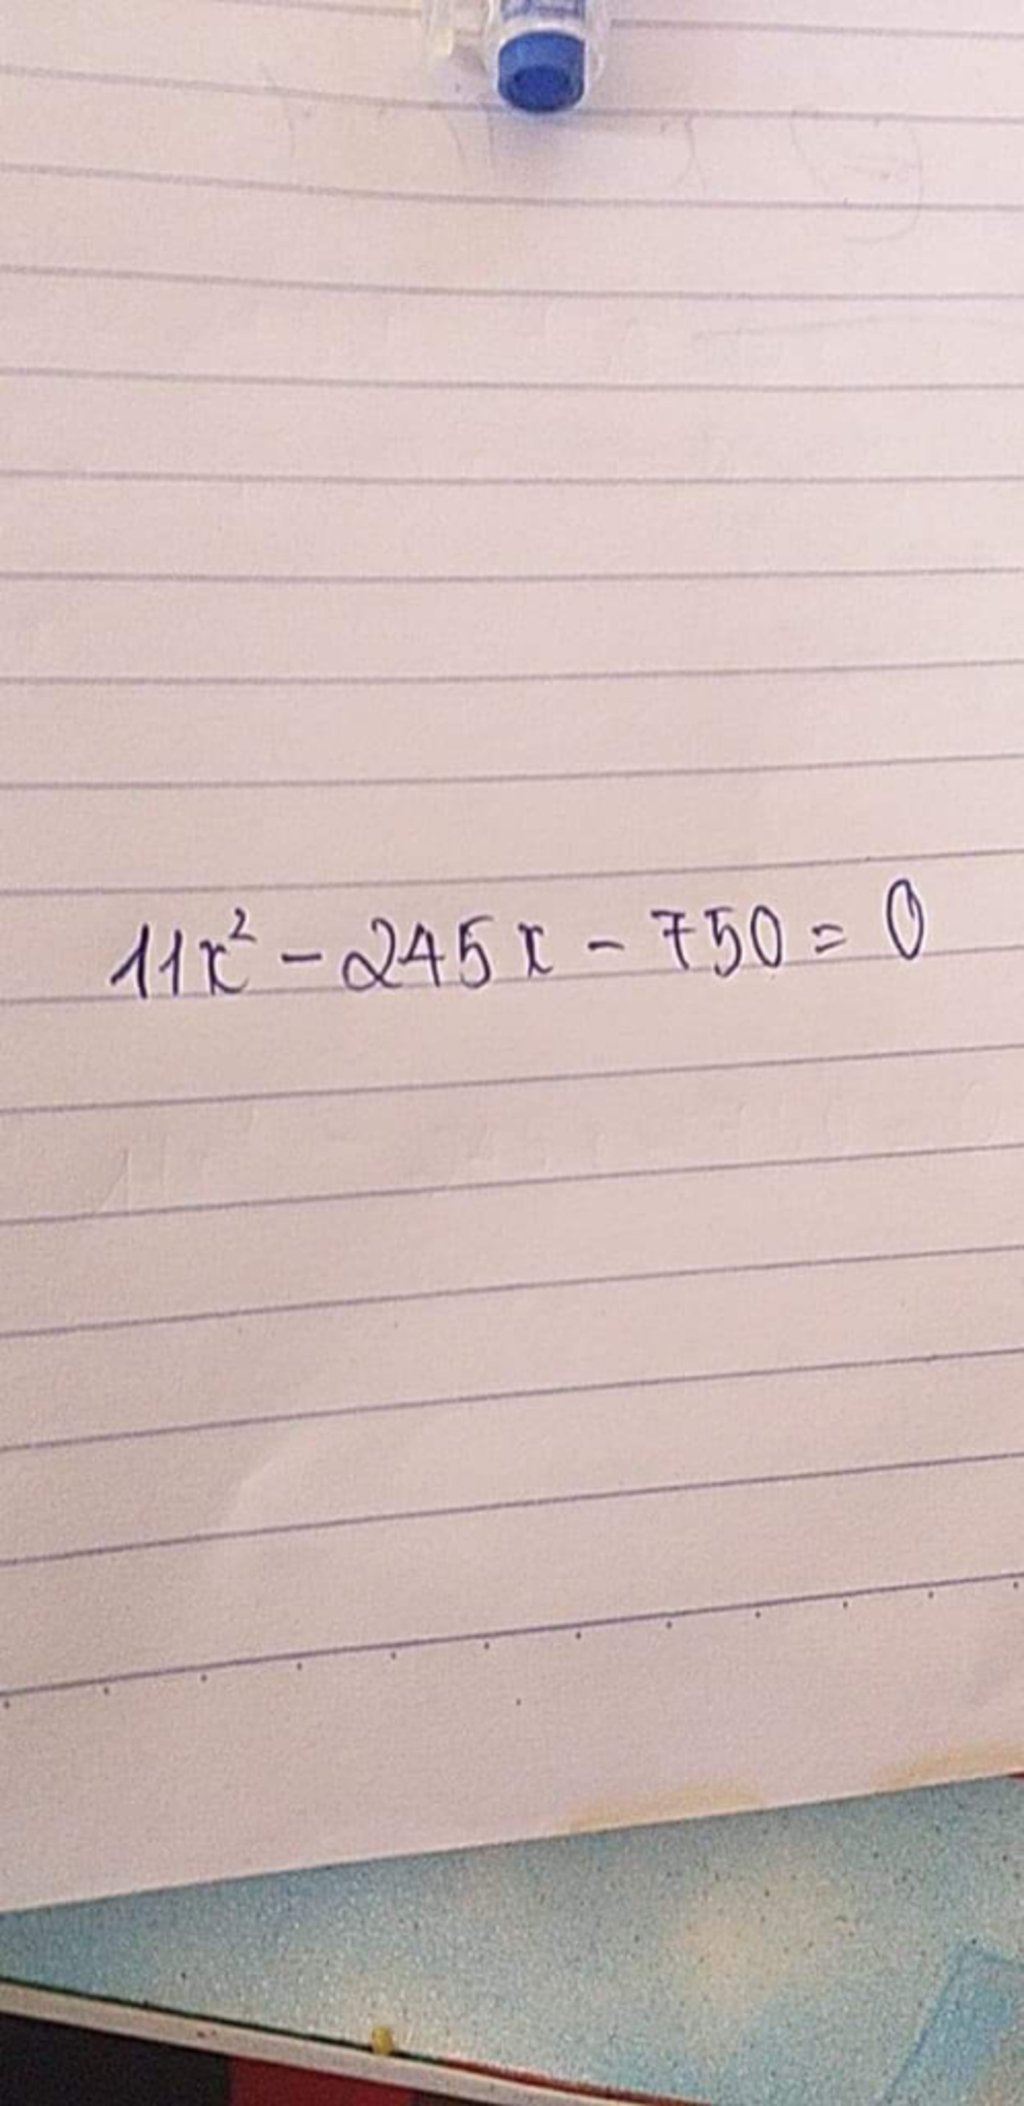 11x² - 245x - 750 = 0